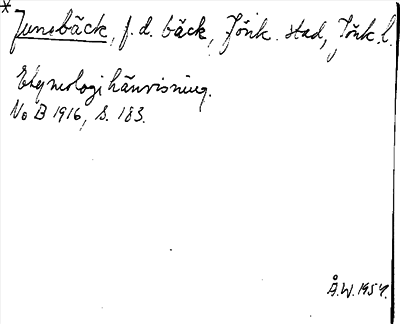 * Junebäck, f.d. bäck, Jönk. stad, Jönk. l.
Etymologihänvisning.
No B 1916, s. 183.
Å.W. 1954.